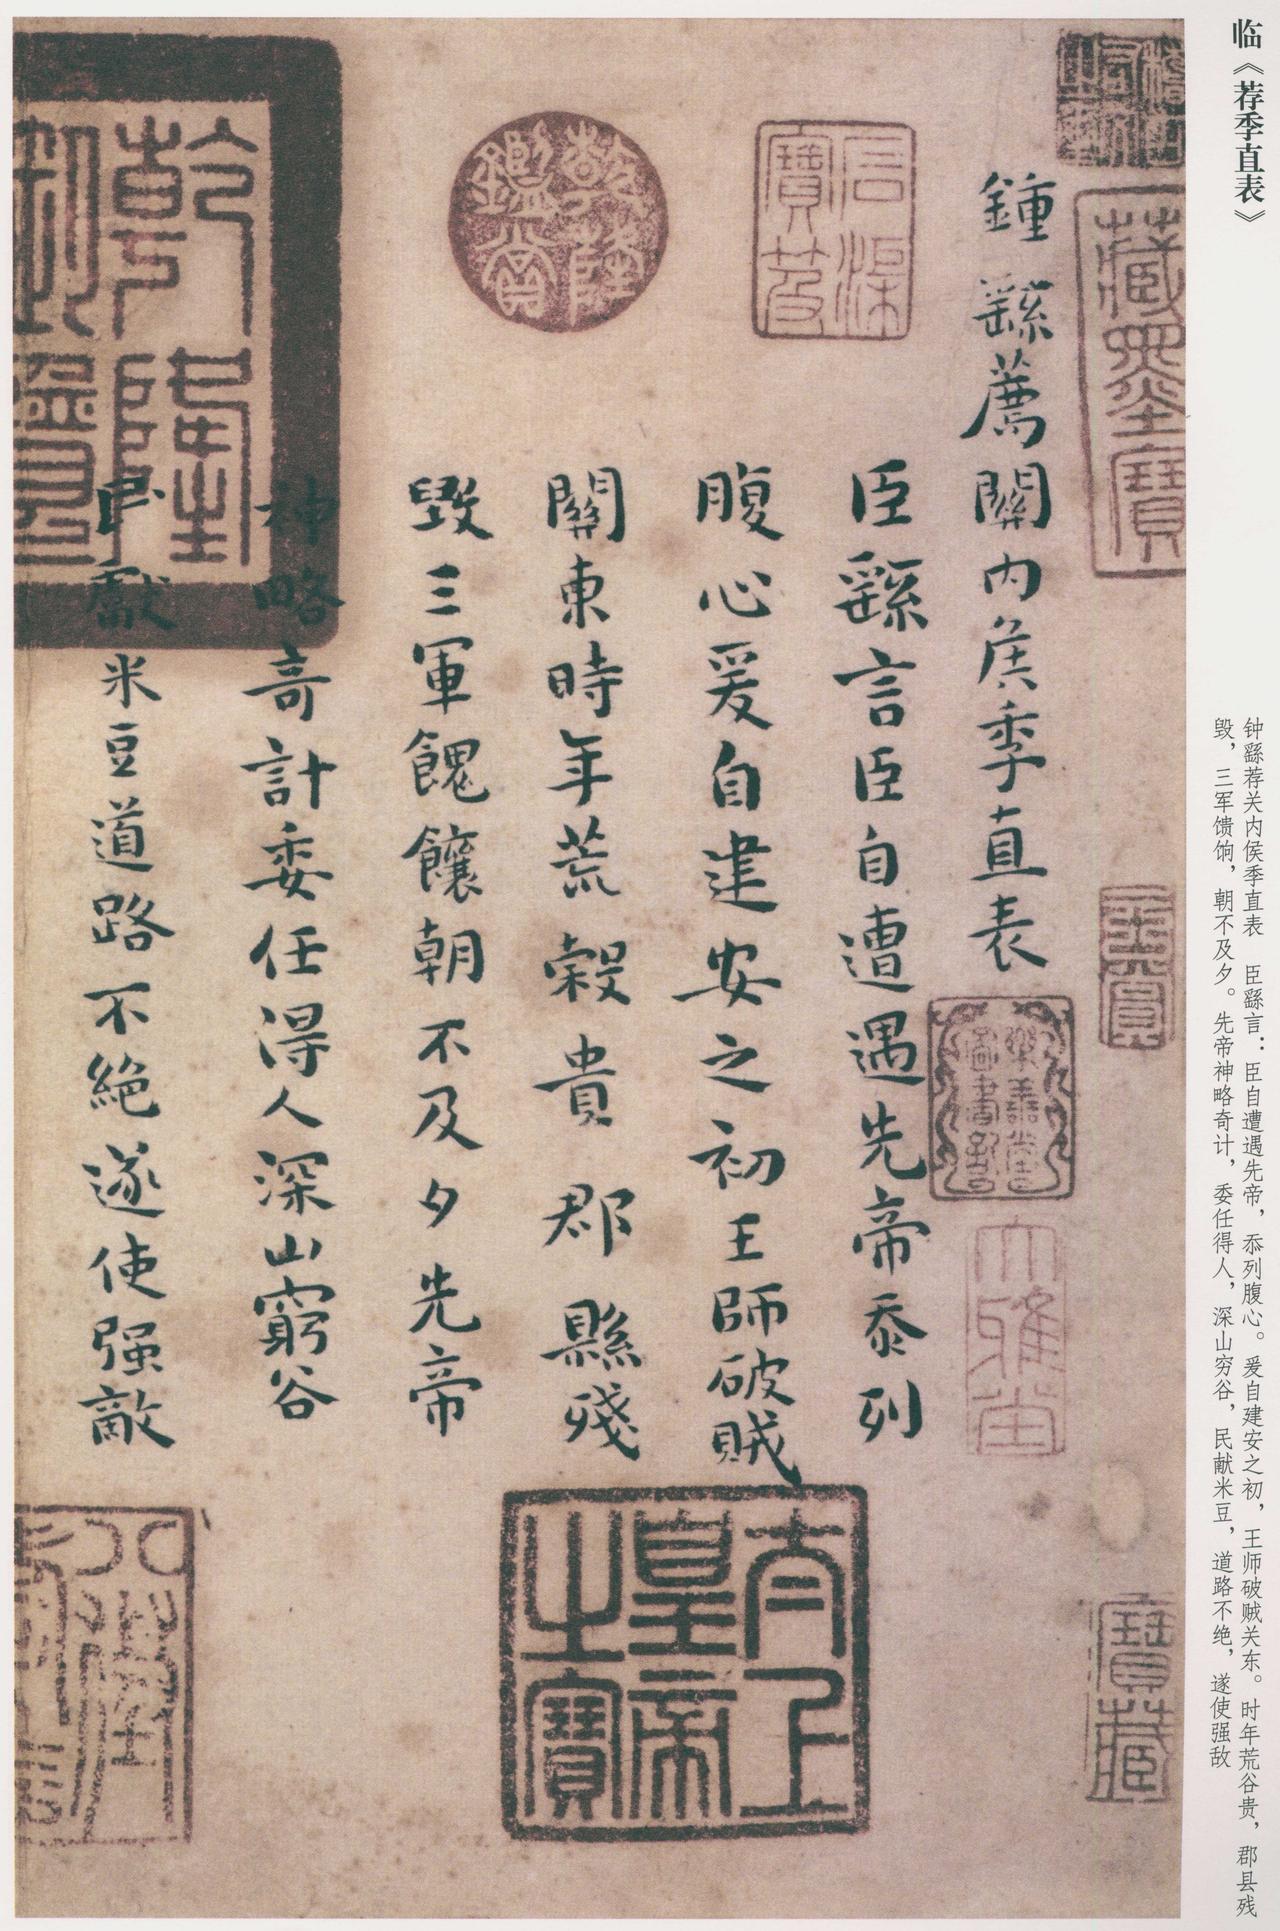 临《荐季直表》
钟繇荐关内侯季直表　臣繇言：臣自遭遇先帝，忝列腹心。爰自建安之初，王师破贼关东。时年荒谷贵，郡县残
毁，三军馈饷，朝不及夕。先帝神略奇计，委任得人，深山穷谷，民献米豆，道路不绝，遂使强敌
鍾繇薦關内侯季直表
臣繇言臣自遭遇先帝忝列
腹心爰自建安之初王師破賊
關東時年荒穀貴郡縣殘
毀三軍餽饟朝不及夕先帝
神略奇計委任得人深山窮谷
民獻米豆道路不絶遂使强敵
藏墨寶
寶藏
大雅堂
樂善堂圖書記
乾隆鑑賞
石渠寶笈
太上皇帝之寶